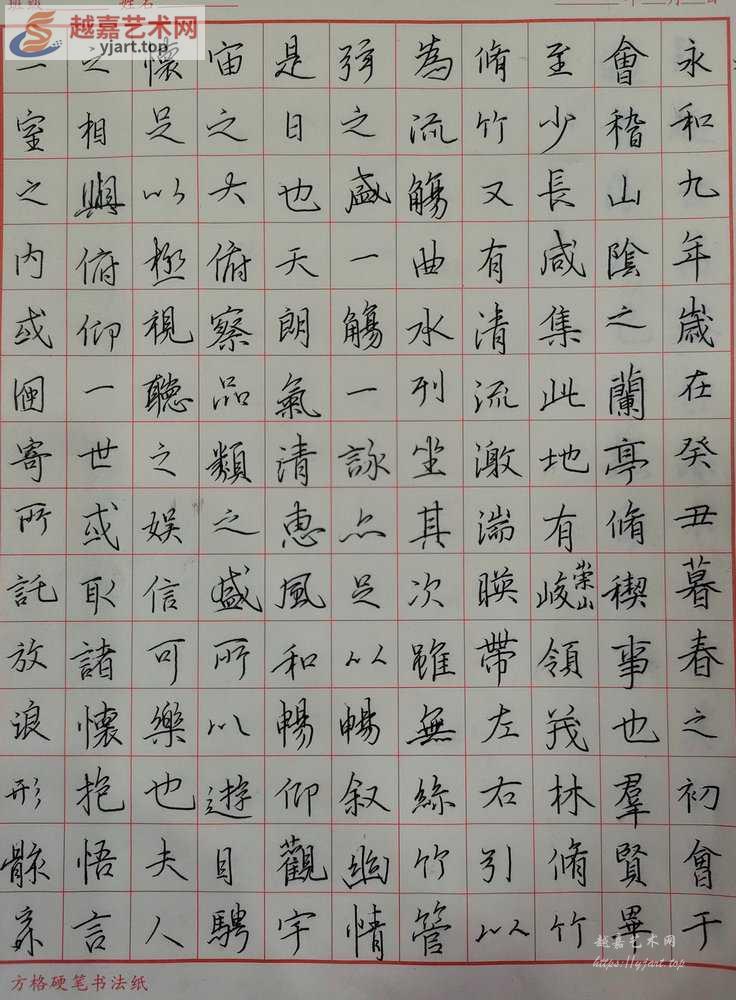 越嘉艺术网
yjart.top
姓名
永和九年歲在癸丑暮春之初會于
會稽山陰之蘭亭脩稧事也羣賢畢
至少長咸集此地有崇山峻領茂林脩竹
脩竹又有清流激湍暎帶左右引以
為流觴曲水列坐其次雖無絲竹管
弦之盛一觴一詠亦足以暢叙幽情
是日也天朗氣清惠風和暢仰觀宇
宙之大俯察品類之盛所以遊目騁
懷足以極視聽之娛信可樂也夫人
之相與俯仰一世或取諸懷抱悟言
一室之內或因寄所託放浪形骸
方格硬笔书法纸
越嘉艺术网
https://yjart.top